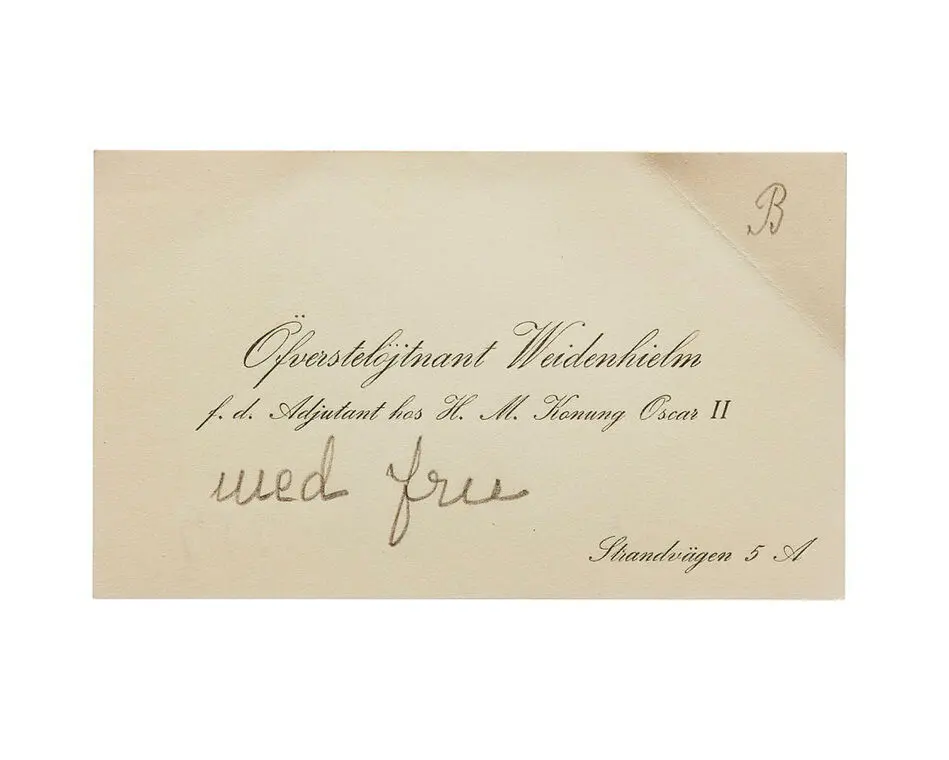 B
Öfverstelöjtnant Weidenhielm
f. d. Adjutant hos H. M. Konung Oscar II
med fru
Strandvägen 5 A